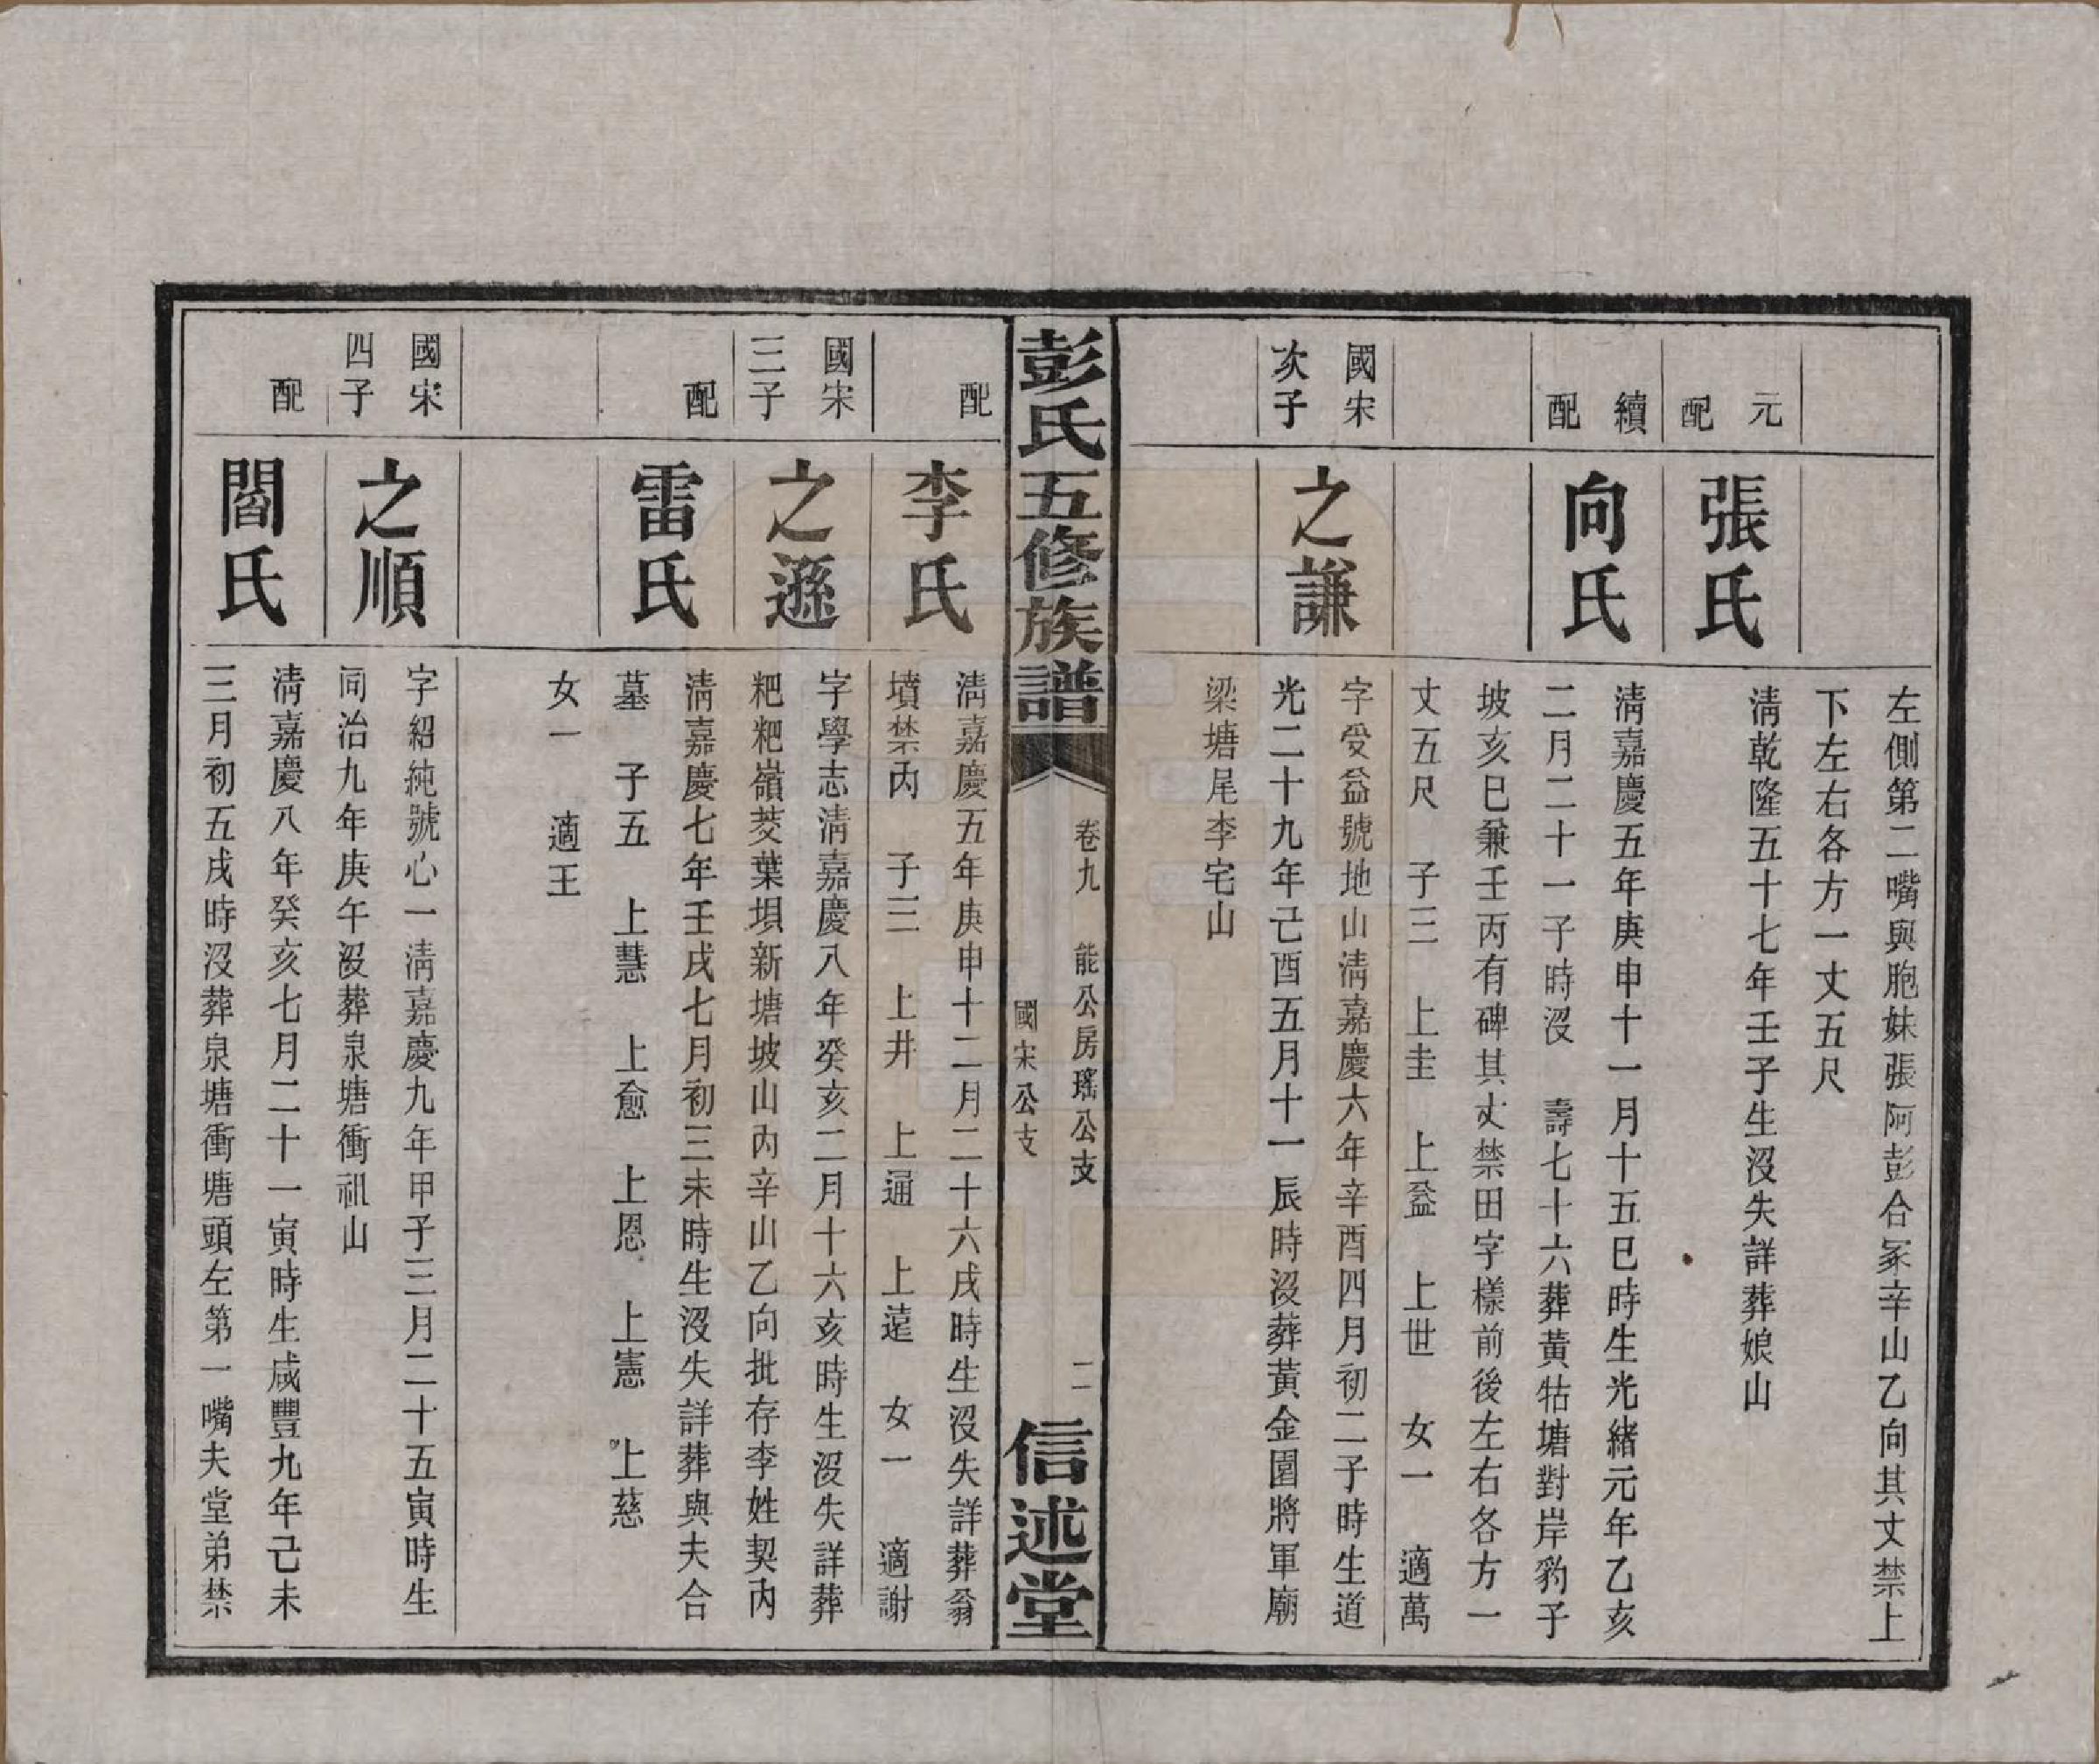 左側第二嘴與胞妹張阿彭合冢辛山乙向其丈禁上
下左右各方一丈五尺
元
配
張氏
清乾隆五十七年壬子生沒失詳葬娘山
續
配
向氏
清嘉慶五年庚申十一月十五巳時生光緒元年乙亥
二月二十一子時沒 壽七十六葬黃牯塘對岸豹子
坡亥巳兼壬丙有碑其丈禁田字樣前後左右各方一
丈五尺 子三 上圭 上益 上世 女一 適萬
國宋
次子
之謙
字受益號地山清嘉慶六年辛酉四月初二子時生道
光二十九年己酉五月十一辰時沒葬黃金園將軍廟
梁塘尾李宅山
彭氏五修族譜
卷九 能公房瑤公支
國宋公支
二
信述堂
配
李氏
清嘉慶五年庚申十二月二十六戌時生沒失詳葬翁
墳禁內 子三 上井 上通 上遠 女一 適謝
國宋
三子
之遜
字學志清嘉慶八年癸亥二月十六亥時生沒失詳葬
粑粑嶺菱葉垻新塘坡山內辛山乙向批存李姓契內
配
雷氏
清嘉慶七年壬戌七月初三未時生沒失詳葬與夫合
墓 子五 上慧 上愈 上恩 上憲 上慈
女一 適王
國宋
四子
之順
字紹純號心一清嘉慶九年甲子三月二十五寅時生
同治九年庚午沒葬泉塘衝祖山
配
閻氏
清嘉慶八年癸亥七月二十一寅時生咸豐九年己未
三月初五戌時沒葬泉塘衝塘頭左第一嘴夫堂弟禁